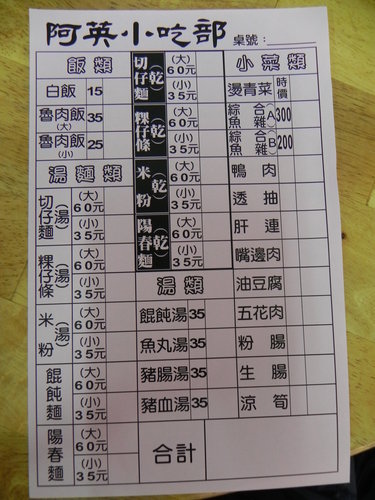 阿英小吃部 桌號:
飯類
白飯 15
魯肉飯(大) 35
魯肉飯(小) 25
湯麵類
切仔麵(湯) (大)60元
(小)35元
粿仔條(湯) (大)60元
(小)35元
米粉(湯) (大)60元
(小)35元
餛飩麵 (大)60元
(小)35元
陽春麵 (大)60元
(小)35元
切仔麵(乾) (大)60元
(小)35元
粿仔條(乾) (大)60元
(小)35元
米粉(乾) (大)60元
(小)35元
陽春麵(乾) (大)60元
(小)35元
湯類
餛飩湯 35
魚丸湯 35
豬腸湯 35
豬血湯 35
合計
小菜類
燙青菜 時價
綜合魚雜(A) 300
綜合魚雜(B) 200
鴨肉
透抽
肝連
嘴邊肉
油豆腐
五花肉
粉腸
生腸
涼筍